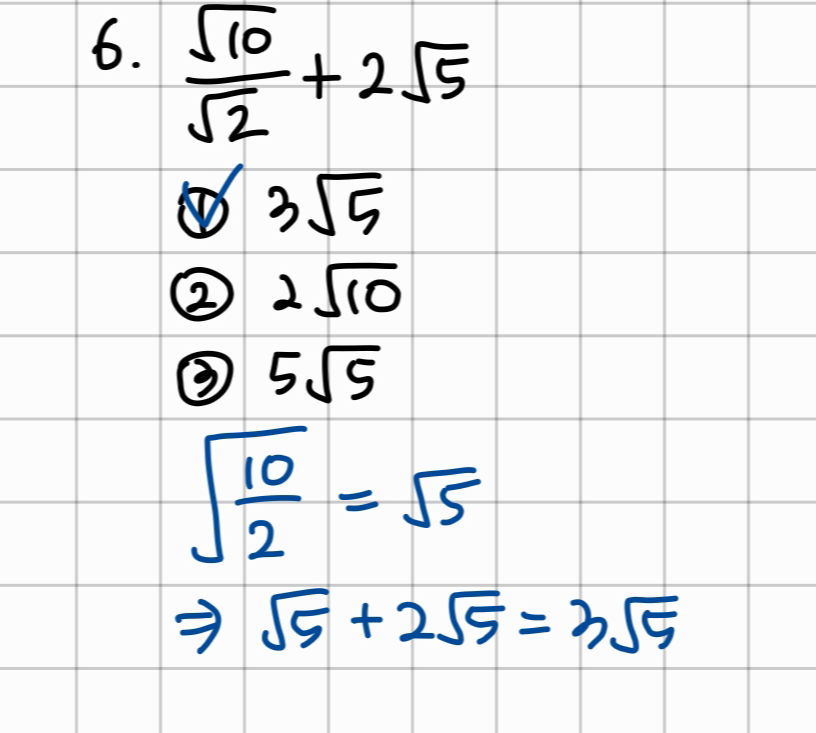 6. √10/√2 + 2√5
① 3√5
② 2√10
③ 5√5
√(10/2) = √5
⇒ √5 + 2√5 = 3√5